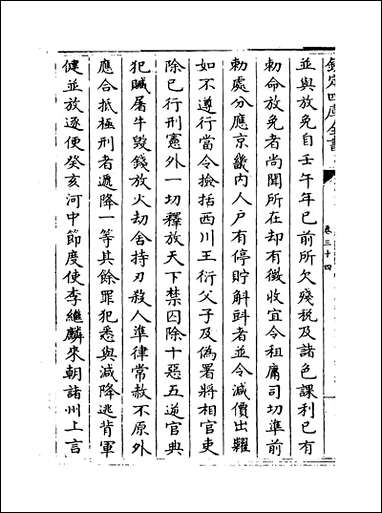 欽定四庫全書
卷三十四
並與放免自壬午年已前所欠殘稅及諸色課利已有
勅命放免者尚聞所在却有徵收宜令租庸司切準前
勅處分應京畿內人户有停貯斛㪷者並令減價出糶
如不遵行當令撿括西川王衍父子及偽署將相官吏
除已行刑憲外一切釋放天下禁囚除十惡五逆官典
犯贓屠牛毀錢放火刼舍持刃殺人準律常赦不原外
應合抵極刑者遞降一等其餘罪犯悉與減降逃背軍
健並放逐便癸亥河中節度使李繼麟來朝諸州上言